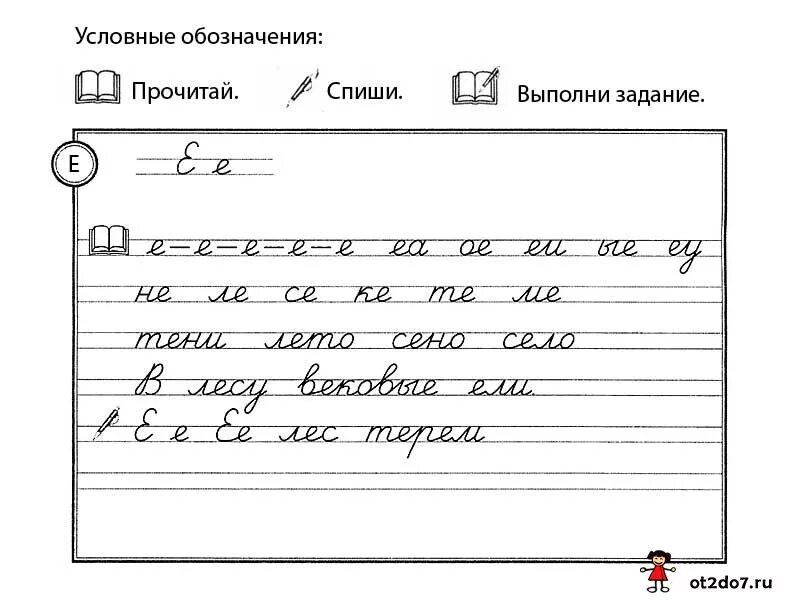 Условные обозначения:
Прочитай. Спиши. Выполни задание.
Е Е е
е–е–е–е–е еа ое еи ые еу
не ле се ке те ме
тени лето сено село
В лесу вековые ели.
Е е Ее лес терем
ot2do7.ru